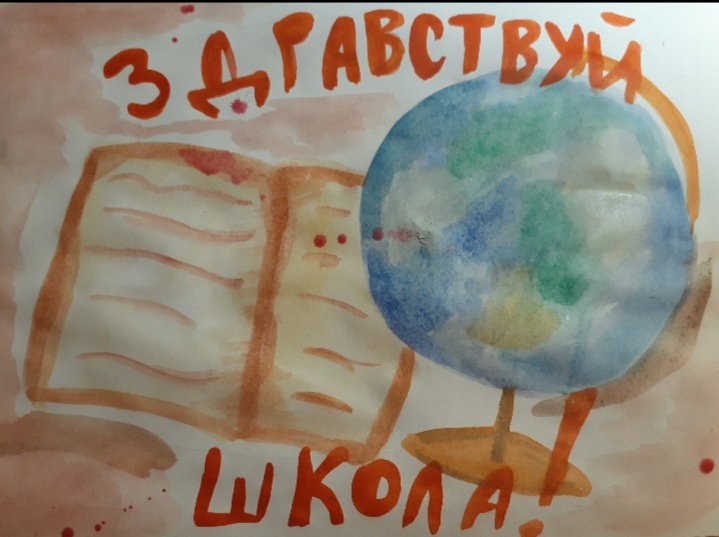 ЗДРАВСТВУЙ
ШКОЛА!